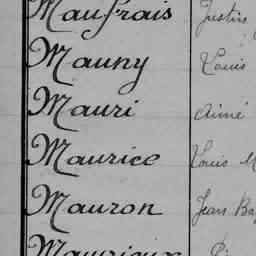 Maufrais Justin
Mauny Louis
Mauri Aimé
Maurice Louis M
Mauron Jean Ba